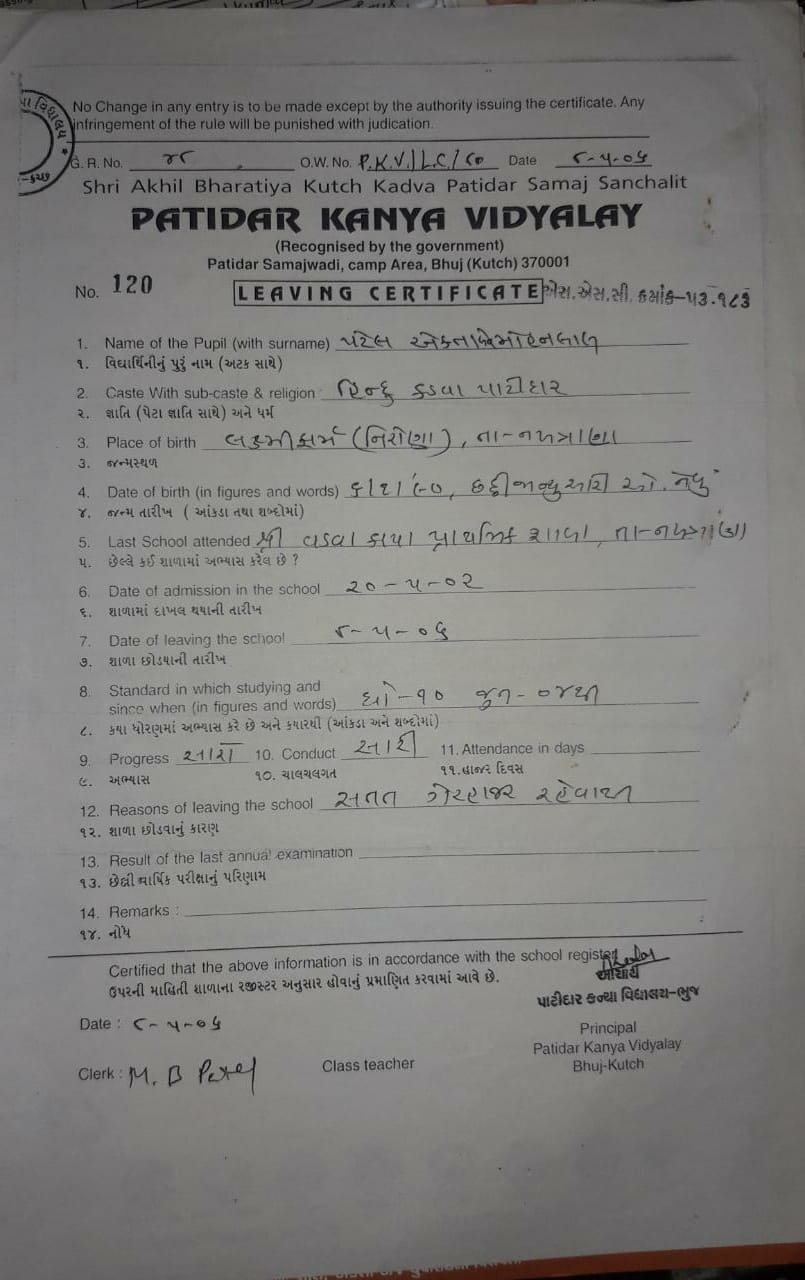 No Change in any entry is to be made except by the authority issuing the certificate. Any
infringement of the rule will be punished with judication.
G. R. No. ૪૮ O.W. No. P.K.V.|L.C/૬૦ Date ૮-૫-૦૬
Shri Akhil Bharatiya Kutch Kadva Patidar Samaj Sanchalit
PATIDAR KANYA VIDYALAY
(Recognised by the government)
Patidar Samajwadi, camp Area, Bhuj (Kutch) 370001
No. 120 LEAVING CERTIFICATE એસ.એસ.સી. ક્રમાંક-૫૩.૧૮૩
1. Name of the Pupil (with surname) પટેલ એકતાબેન મોહનલાલ
૧. વિદ્યાર્થિનીનું પુરું નામ (અટક સાથે)
2. Caste With sub-caste & religion હિન્દુ કડવા પાટીદાર
૨. જ્ઞાતિ (પેટા જ્ઞાતિ સાથે) અને ધર્મ
3. Place of birth લક્ષ્મીફાર્મ (નિરોણા), તા-નખત્રાણા
૩. જન્મસ્થળ
4. Date of birth (in figures and words) ૬/૧/૯૦, છઠ્ઠી જાન્યુઆરી ઓ. નેવું
૪. જન્મ તારીખ ( આંકડા તથા શબ્દોમાં)
5. Last School attended શ્રી વડવા કાયા પ્રાથમિક શાળા, તા-નખત્રાણા
૫. છેલ્લે કઈ શાળામાં અભ્યાસ કરેલ છે ?
6. Date of admission in the school ૨૦-૫-૦૨
૬. શાળામાં દાખલ થયાની તારીખ
7. Date of leaving the school ૮-૫-૦૬
૭. શાળા છોડયાની તારીખ
8. Standard in which studying and
since when (in figures and words) ધો-૧૦ જુન-૦૪થી
૮. કયા ધોરણમાં અભ્યાસ કરે છે અને કયારથી (આંકડા અને શબ્દોમાં)
9. Progress સારો 10. Conduct સારી 11. Attendance in days
૯. અભ્યાસ ૧૦. ચાલચલગત ૧૧.હાજર દિવસ
12. Reasons of leaving the school સતત ગેરહાજર રહેવાથી
૧૨. શાળા છોડવાનું કારણ
13. Result of the last annual examination
૧૩. છેલ્લી વાર્ષિક પરીક્ષાનું પરિણામ
14. Remarks :
૧૪. નોંધ
Certified that the above information is in accordance with the school register
ઉપરની માહિતી શાળાના રજીસ્ટર અનુસાર હોવાનું પ્રમાણિત કરવામાં આવે છે.
આચાર્ય
પાટીદાર કન્યા વિદ્યાલય-ભુજ
Date : ૮-૫-૦૬
Principal
Patidar Kanya Vidyalay
Bhuj-Kutch
Clerk : M. B Patel Class teacher